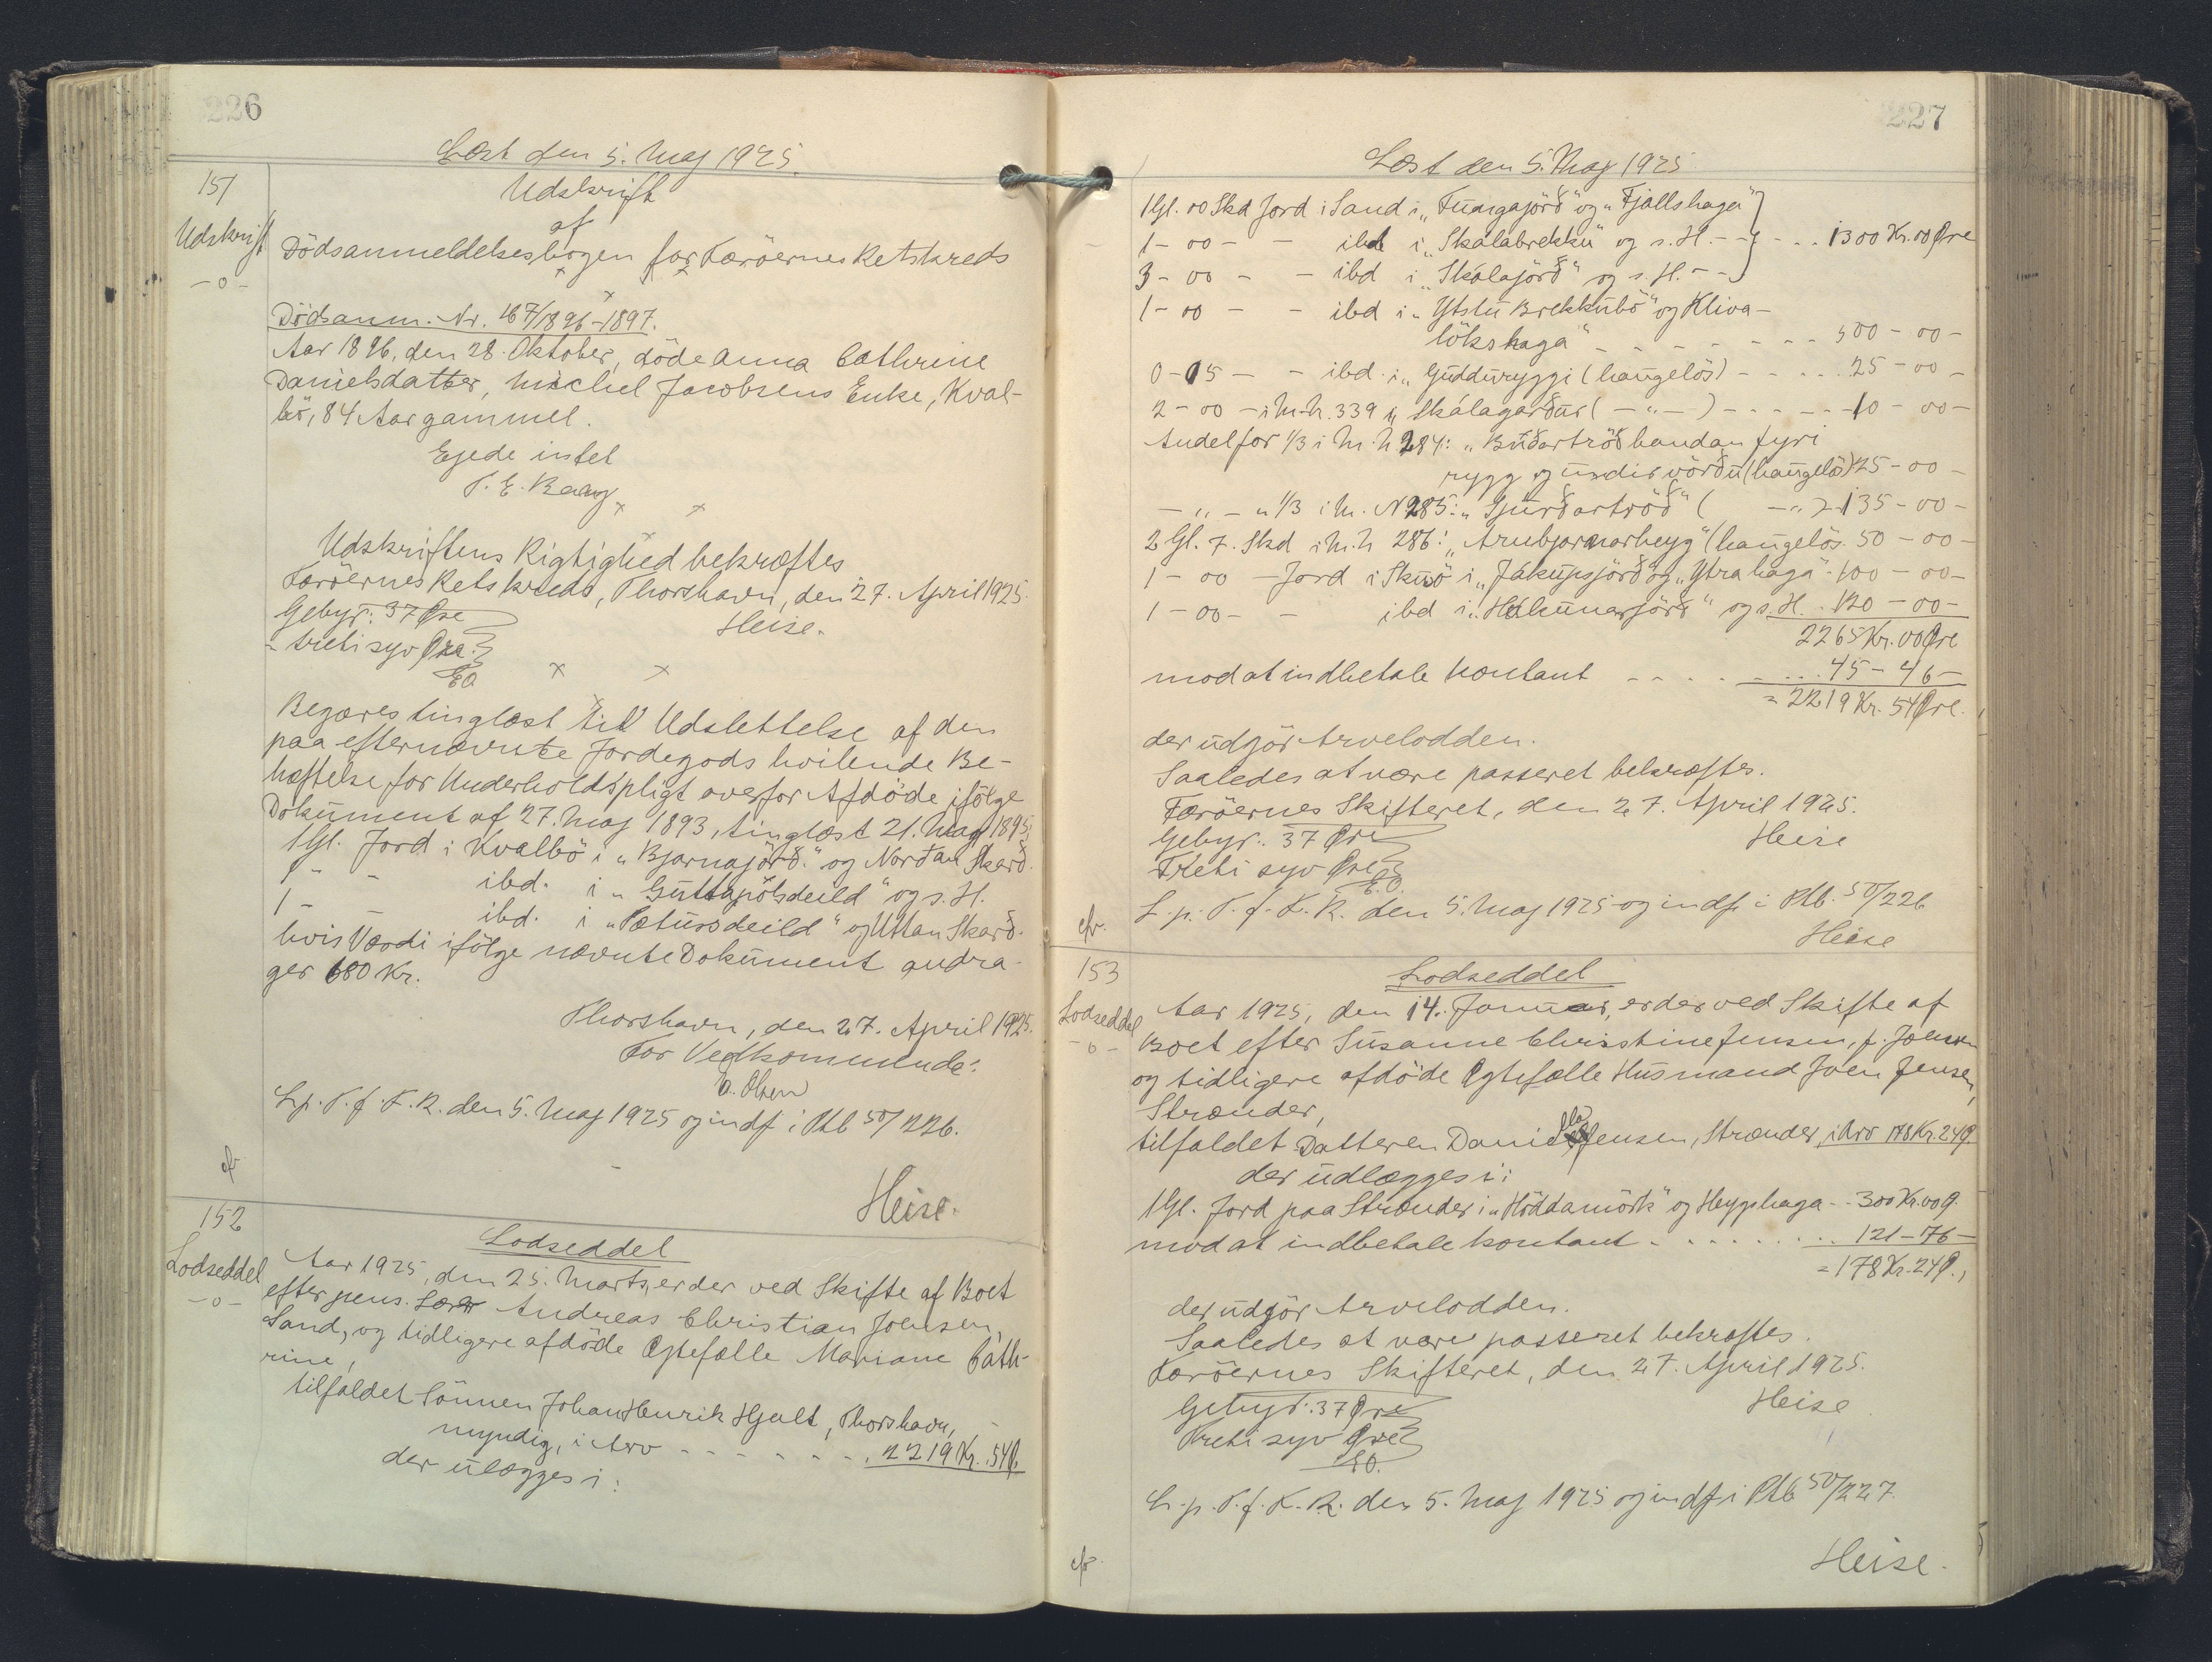 226
Læst den 5. Maj 1925.
151
Udskrift
-o-
Udskrift
af
Dödsanmeldelsesbogen for Færöernes Retskreds
Dödsanm. Nr. 467/1896-1897.
Aar 1896, den 28. Oktober, döde Anna Cathrine
Danielsdatter, Michel Jacobsens Enke, Kval-
bö, 84 Aar gammel.
Ejede intet
T. E. Baag
Udskriftens Rigtighed bekræftes
Færöernes Retskreds, Thorshavn, den 27. April 1925.
Gebyr: 37 Øre
Heise.
= treti syv Øre.
EO
Begæres tinglæst til Udslettelse af den
paa efternævnte Jordegods hvilende Be-
hæftelse for Underholdspligt overfor Afdöde ifölge
Dokument af 27. Maj 1893, tinglæst 21. Maj 1895:
1 Gl. Jord i Kvalbö i "Bjarnajörð" og Norðan Skarð.
1 - - ibd. i "Guttapólsdeild" og s. H.
1 - - ibd. i "Pætursdeild" og Uttan Skarð.
hvis Værdi ifölge nævnte Dokument andra-
ger 680 Kr.
Thorshavn, den 27. April 1925.
For Vedkommende:
E. Olsen
L. p. T. f. F. R. den 5. Maj 1925 og indf i Ptb 50/226.
cfr.
Heise.
152
Lodseddel
-o-
Lodseddel
Aar 1925, den 25. Marts, er der ved Skifte af Boet
efter pens. Lærer Andreas Christian Joensen,
Sand, og tidligere afdöde Ægtefælle Mariane Cath-
rine,
tilfaldet Sönnen Johan Henrik Hjalt, Thorshavn,
myndig, i Arv - - - - - - 2219 Kr. 54 Ø.
der ulægges i:
227
Læst den 5. Maj 1925
1 Gl. 00 Skd Jord i Sand i "Tungajörð" og "Fjallshaga"
1 - 00 - - ibd i "Skálabrekku" og s. H. - - - - - 1300 Kr. 00 Øre
3 - 00 - - ibd i "Skálajörð" og s. H. - -
1 - 00 - - ibd i "Ytstu Brekkubö" og Kliva-
lökshaga" - - - - - - - 500 - 00 -
0 - 15 - - ibd. i "Gudduryggi (haugelös) - - - - - 25 - 00 -
2 - 00 - i M. N. 339 i "Skálagarðar ( - " - ) - - - - - 10 - 00 -
Andel for 1/3 i M. N 284: "Búðartröð handan fyri
rygg og undir vörðu (haugelös) 25 - 00 -
- " - " 1/3 i M. N 285: "Sjúrðartröð" ( - " - ) 135 - 00 -
2 Gl. 7. Skd i M. N 286: "Arnbjarnarheyg" (haugelös. 50 - 00 -
1 - 00 - Jord i Skuö i "Jákupsjörð og "Ytra haga" - 100 - 00 -
1 - 00 - - ibd i "Hákunarjörð" og s. H. - 120 - 00 -
2265 Kr. 00 Øre
mod at indbetale kontant - - - - - - - 45 - 46 -
= 2219 Kr. 54 Øre.
der udgör Arvelodden.
Saaledes at være passeret bekræftes.
Færöernes Skifteret, den 27. April 1925.
Gebyr: 37 Øre
Heise
Treti syv Øre
E.O.
L. p. T. f. F. R. den 5. Maj 1925 og indf i Ptb. 50/226
cfr.
Heise
153
Lodseddel
-o-
Lodseddel
Aar 1925, den 14. Januar, er der ved Skifte af
Boet efter Susanne Christine Jensen, f. Joensen
og tidligere afdöde Ægtefælle Husmand Joen Jensen,
Strænder,
tilfaldet Datteren Daniella Jensen, Strænder, i Arv 178 Kr. 24 Ø.
der udlægges i:
1 Gl. Jord paa Strænder i "Höddamörk" og Heygshaga - - 300 Kr. 00 Ø.
mod at indbetale kontant - - - - - - - 121 - 76 -
= 178 Kr. 24 Ø.,
der udgör Arvelodden.
Saaledes at være passeret bekræftes.
Færöernes Skifteret, den 27. April 1925.
Gebyr: 37 Øre
Heise
Treti syv Øre
EO.
L. p. T. f. F. R. den 5. Maj 1925 og indf i Ptb 50/227
cfr.
Heise.